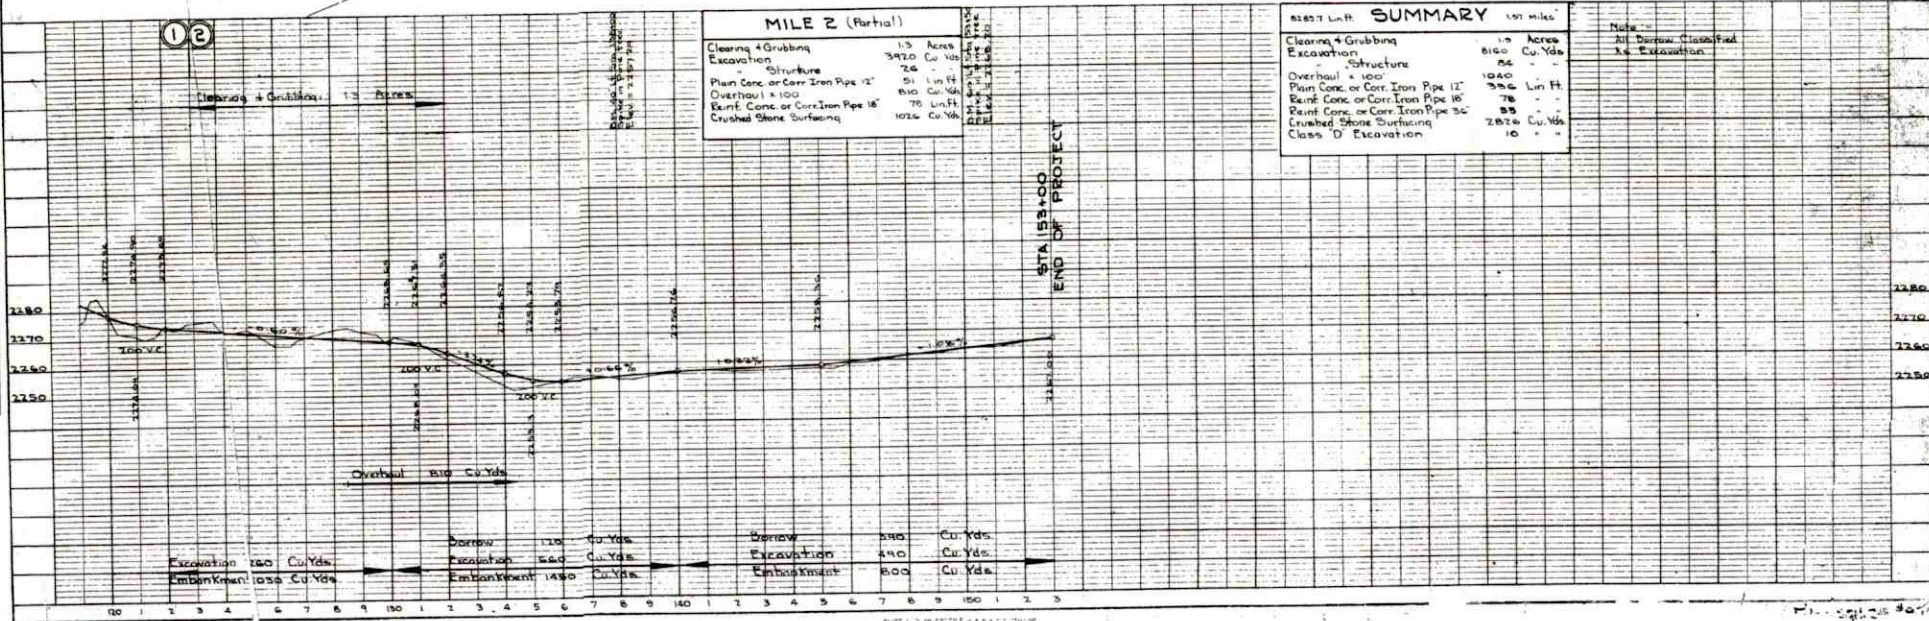 ① ②
MILE 2 (Partial)
Clearing & Grubbing 1.3 Acres
Excavation 3920 Cu Yds
" Structure 26 " "
Plain Conc. or Corr Iron Pipe 12" 51 Lin Ft
Overhaul x 100 810 Cu. Yds
Reinf. Conc. or Corr. Iron Pipe 18" 78 Lin. Ft.
Crushed Stone Surfacing 1026 Cu. Yds
8289.7 Lin. Ft. SUMMARY 1.57 Miles
Clearing & Grubbing 1.3 Acres
Excavation 8160 Cu. Yds
" Structure 84 " "
Overhaul x 100' 1040
Plain Conc. or Corr. Iron Pipe 12" 336 Lin Ft.
Reinf. Conc. or Corr. Iron Pipe 18" 78 " "
Reinf. Conc. or Corr. Iron Pipe 36"
Crushed Stone Surfacing 2826 Cu. Yds.
Class "D" Excavation 10 " "
Note
All Borrow Classified
As Excavation
Clearing & Grubbing 1.3 Acres
STA 153+00
END OF PROJECT
2280
2270
2260
2250
2280
2270
2260
2250
200' V.C.
200 V.C.
200 V.C.
2256.76
2258.36
2267.00
Overhaul 810 Cu. Yds
Excavation 260 Cu. Yds
Embankment 1030 Cu. Yds
Borrow 120 Cu. Yds
Excavation 660 Cu. Yds
Embankment 1430 Cu. Yds
Borrow 390 Cu. Yds
Excavation 490 Cu. Yds
Embankment 800 Cu. Yds
120 1 2 3 4 6 7 8 9 130 1 2 3 4 5 6 7 8 9 140 1 2 3 4 5 6 7 8 9 150 1 2 3